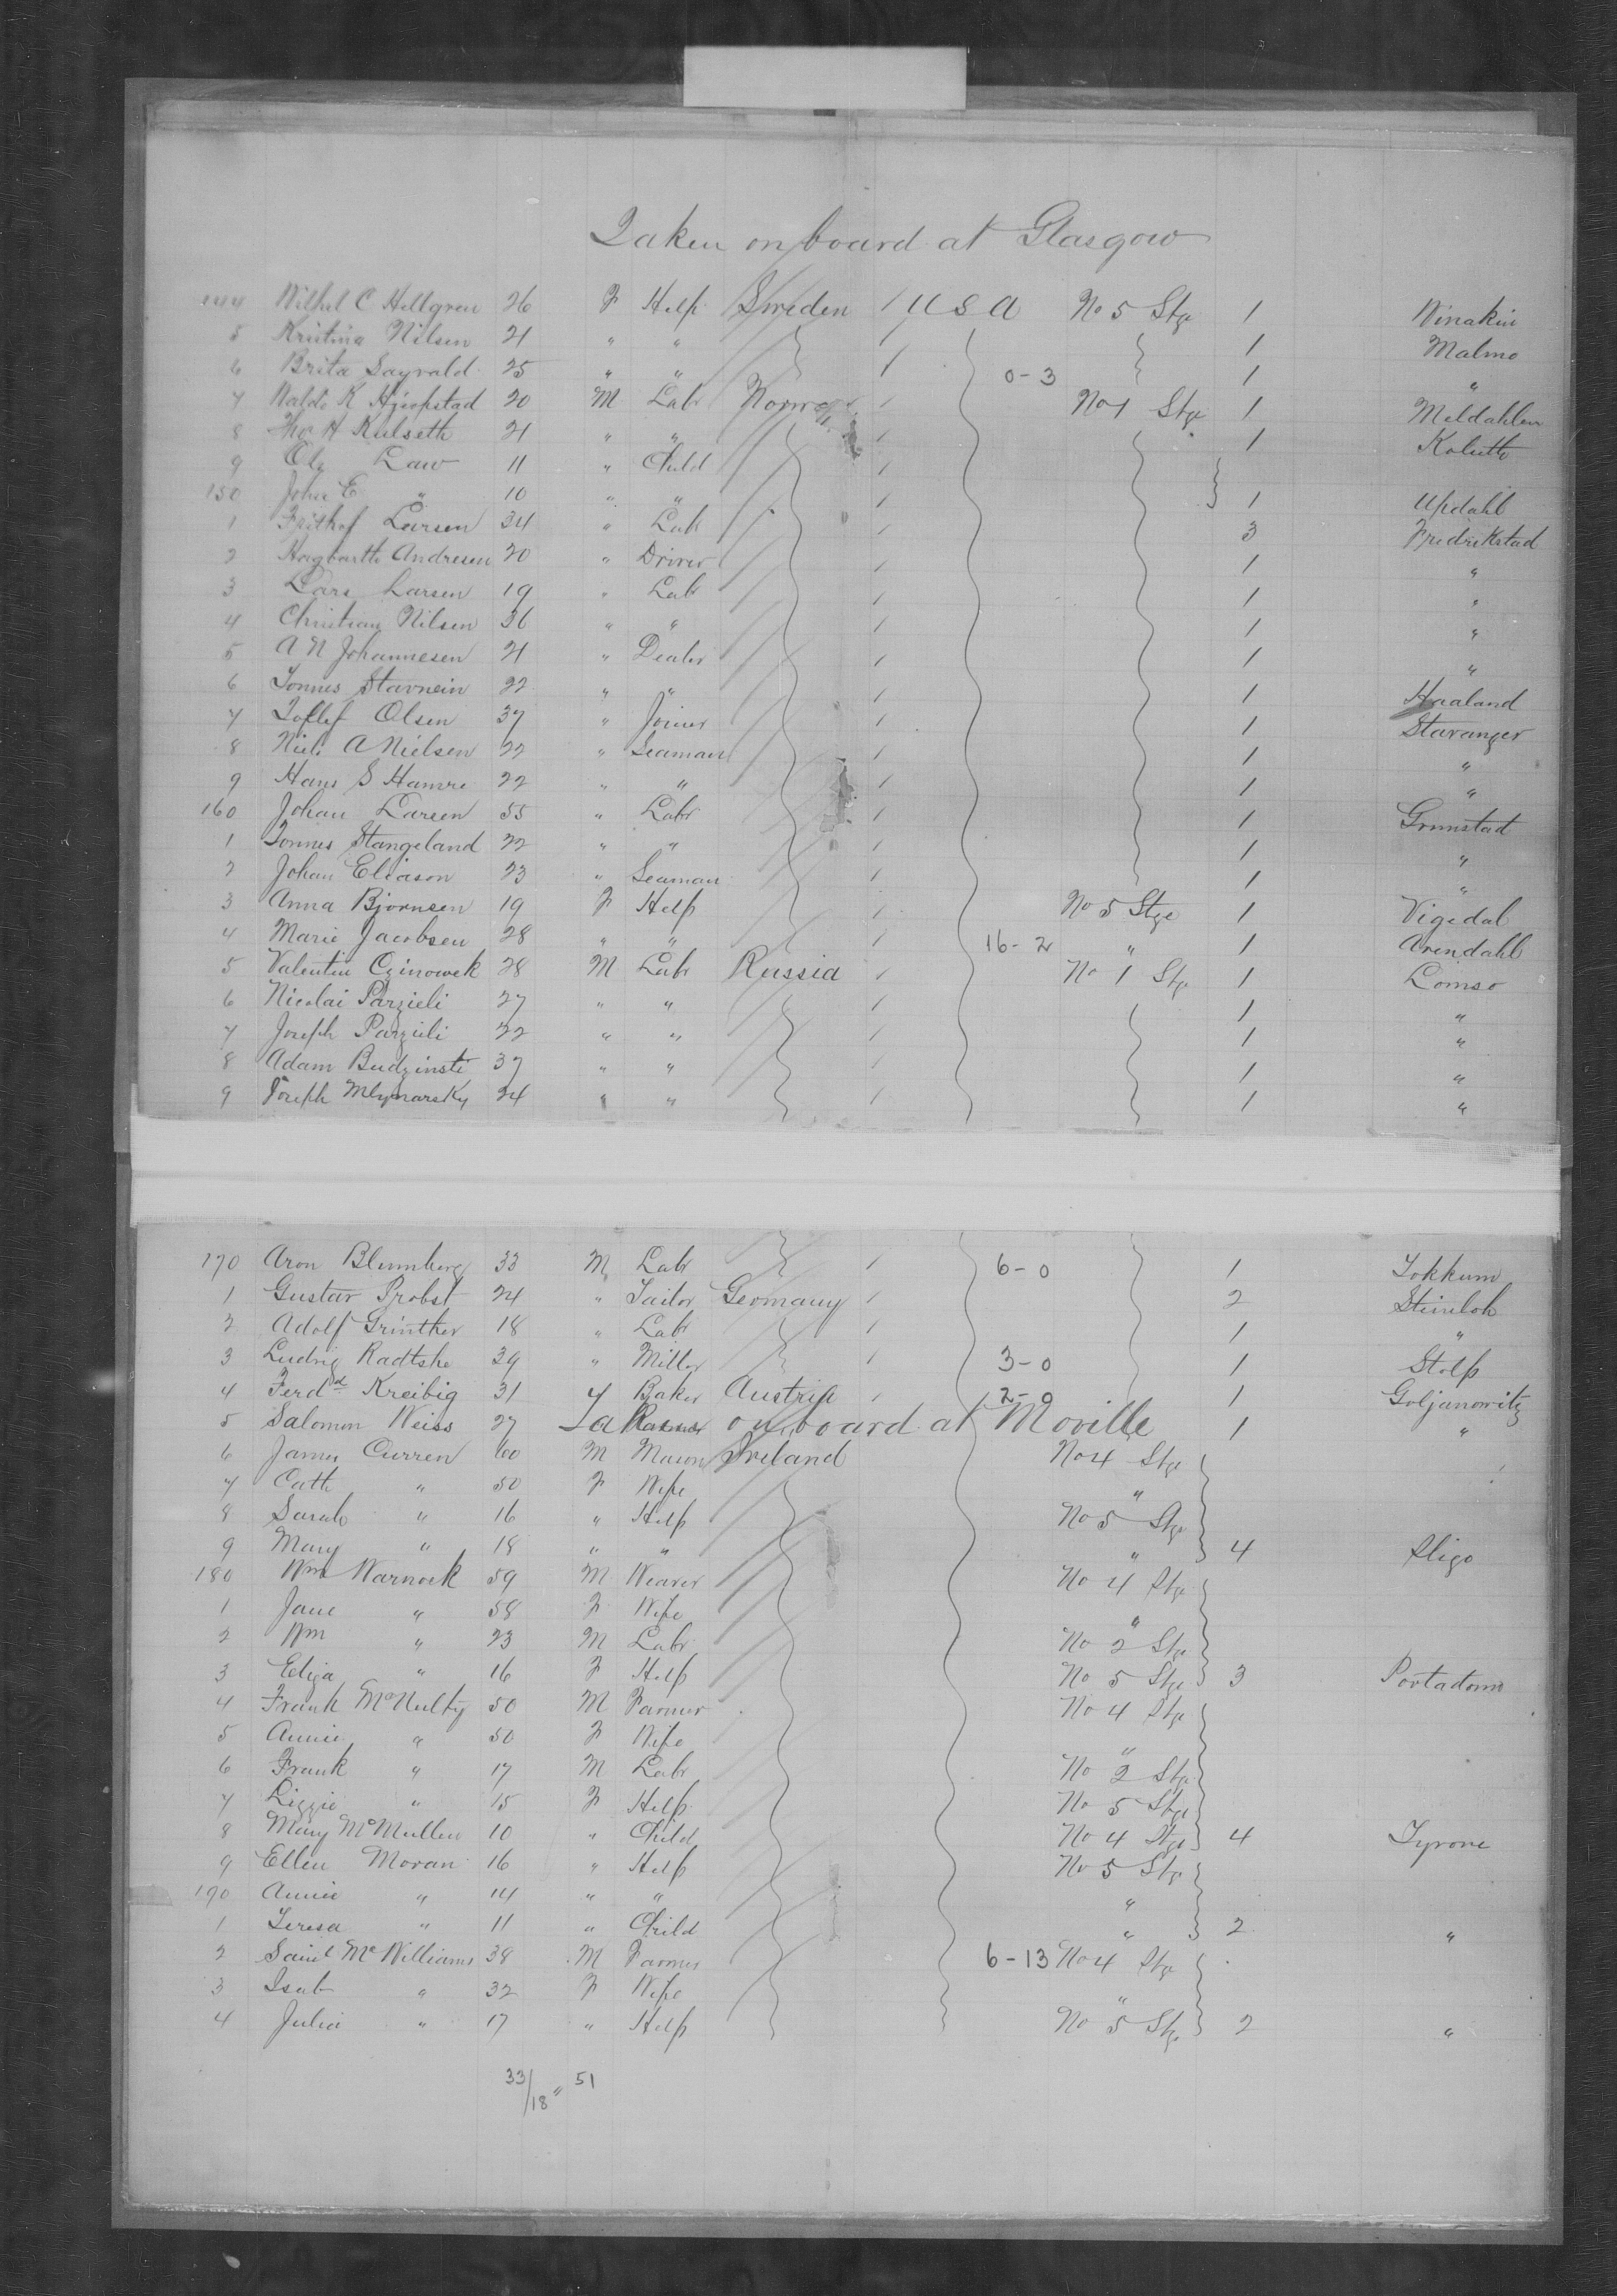 Taken on board at Glasgow
144 Wilhel C Hellgren 26 F Help Sweden / USA No 5 Stge 1 Ninakin
5 Kristina Nilsen 21 " " / 1 Malmo
6 Brita Sayvald 25 " " / 0-3 1 "
7 Naldo K 20 M Labr Norway / No 1 Stge 1 Meldahlen
8 Thos H Kulseth 21 " " / 1 Koluth
9 Ole Law 11 " Child /
150 John E " 10 " " / 1 Updahl
1 Frithof Larsen 34 " Labr / 3 Fredrikstad
2 Hagbarth Andresen 20 " Driver / 1 "
3 Lars Larsen 19 " Labr / 1 "
4 Christian Nilsen 36 " " / 1 "
5 A N Johannesen 21 " Dealer / 1 "
6 Tonnes Stavnein 22 " " / 1 Haaland
7 Toflef Olsen 37 " Joiner / 1 Stavanger
8 Niels A Nielsen 22 " Seaman / 1 "
9 Hans S Hamre 22 " " / 1 "
160 Johan Larsen 55 " Labr / 1 Grimstad
1 Tonnes Stangeland 22 " " / 1 "
2 Johan Eliason 23 " Seaman / 1 "
3 Anna Bjornsen 19 F Help / No 5 Stge 1 Vigedal
4 Marie Jacobsen 28 " " / 16-2 " 1 Arendahl
5 Valentin Czinowek 28 M Labr Russia / No 1 Stge 1 Lomso
6 Nicolai Parzieli 27 " " / 1 "
7 Joseph Parzieli 22 " " / 1 "
8 Adam Budzinsti 37 " " / 1 "
9 Joseph Mlynarsky 24 " " / 1 "
170 Aron Blumberg 33 M Labr / 6-0 1 Jokkum
1 Gustav Probst 24 " Tailor Germany / 2 Steinloh
2 Adolf Grinther 18 " Labr / 1 "
3 Ludvig Radtske 39 " Miller / 3-0 1 Stolp
4 Ferdd Kreibig 31 " Baker Austria / 2-0 1 Goljanowitz
5 Salomon Weiss 27 1 "
Taken on board at Moville
6 James Curren 60 M Mason Ireland No 4 Stge
7 Cath " 50 F Wife "
8 Sarah " 16 " Help No 5 Stge
9 Mary " 18 " " " 4 Sligo
180 Wm Warnock 59 M Weaver No 4 Stge
1 Jane " 58 F Wife "
2 Wm " 23 M Labr No 2 Stge
3 Eliza " 16 F Help No 5 Stge 3 Portadown
4 Frank McNulty 50 M Farmer No 4 Stge
5 Annie " 50 F Wife "
6 Frank " 17 M Labr No 2 Stge
7 Lizzie " 15 F Help No 5 Stge
8 Mary McMullen 10 " Child No 4 Stge 4 Tyrone
9 Ellen Moran 16 " Help No 5 Stge
190 Annie " 14 " " "
1 Teresa " 11 " Child " 2 "
2 Saml McWilliams 38 M Farmer 6-13 No 4 Stge
3 Isab " 32 F Wife "
4 Julia " 17 " Help No 5 Stge 2 "
33/18 " 51